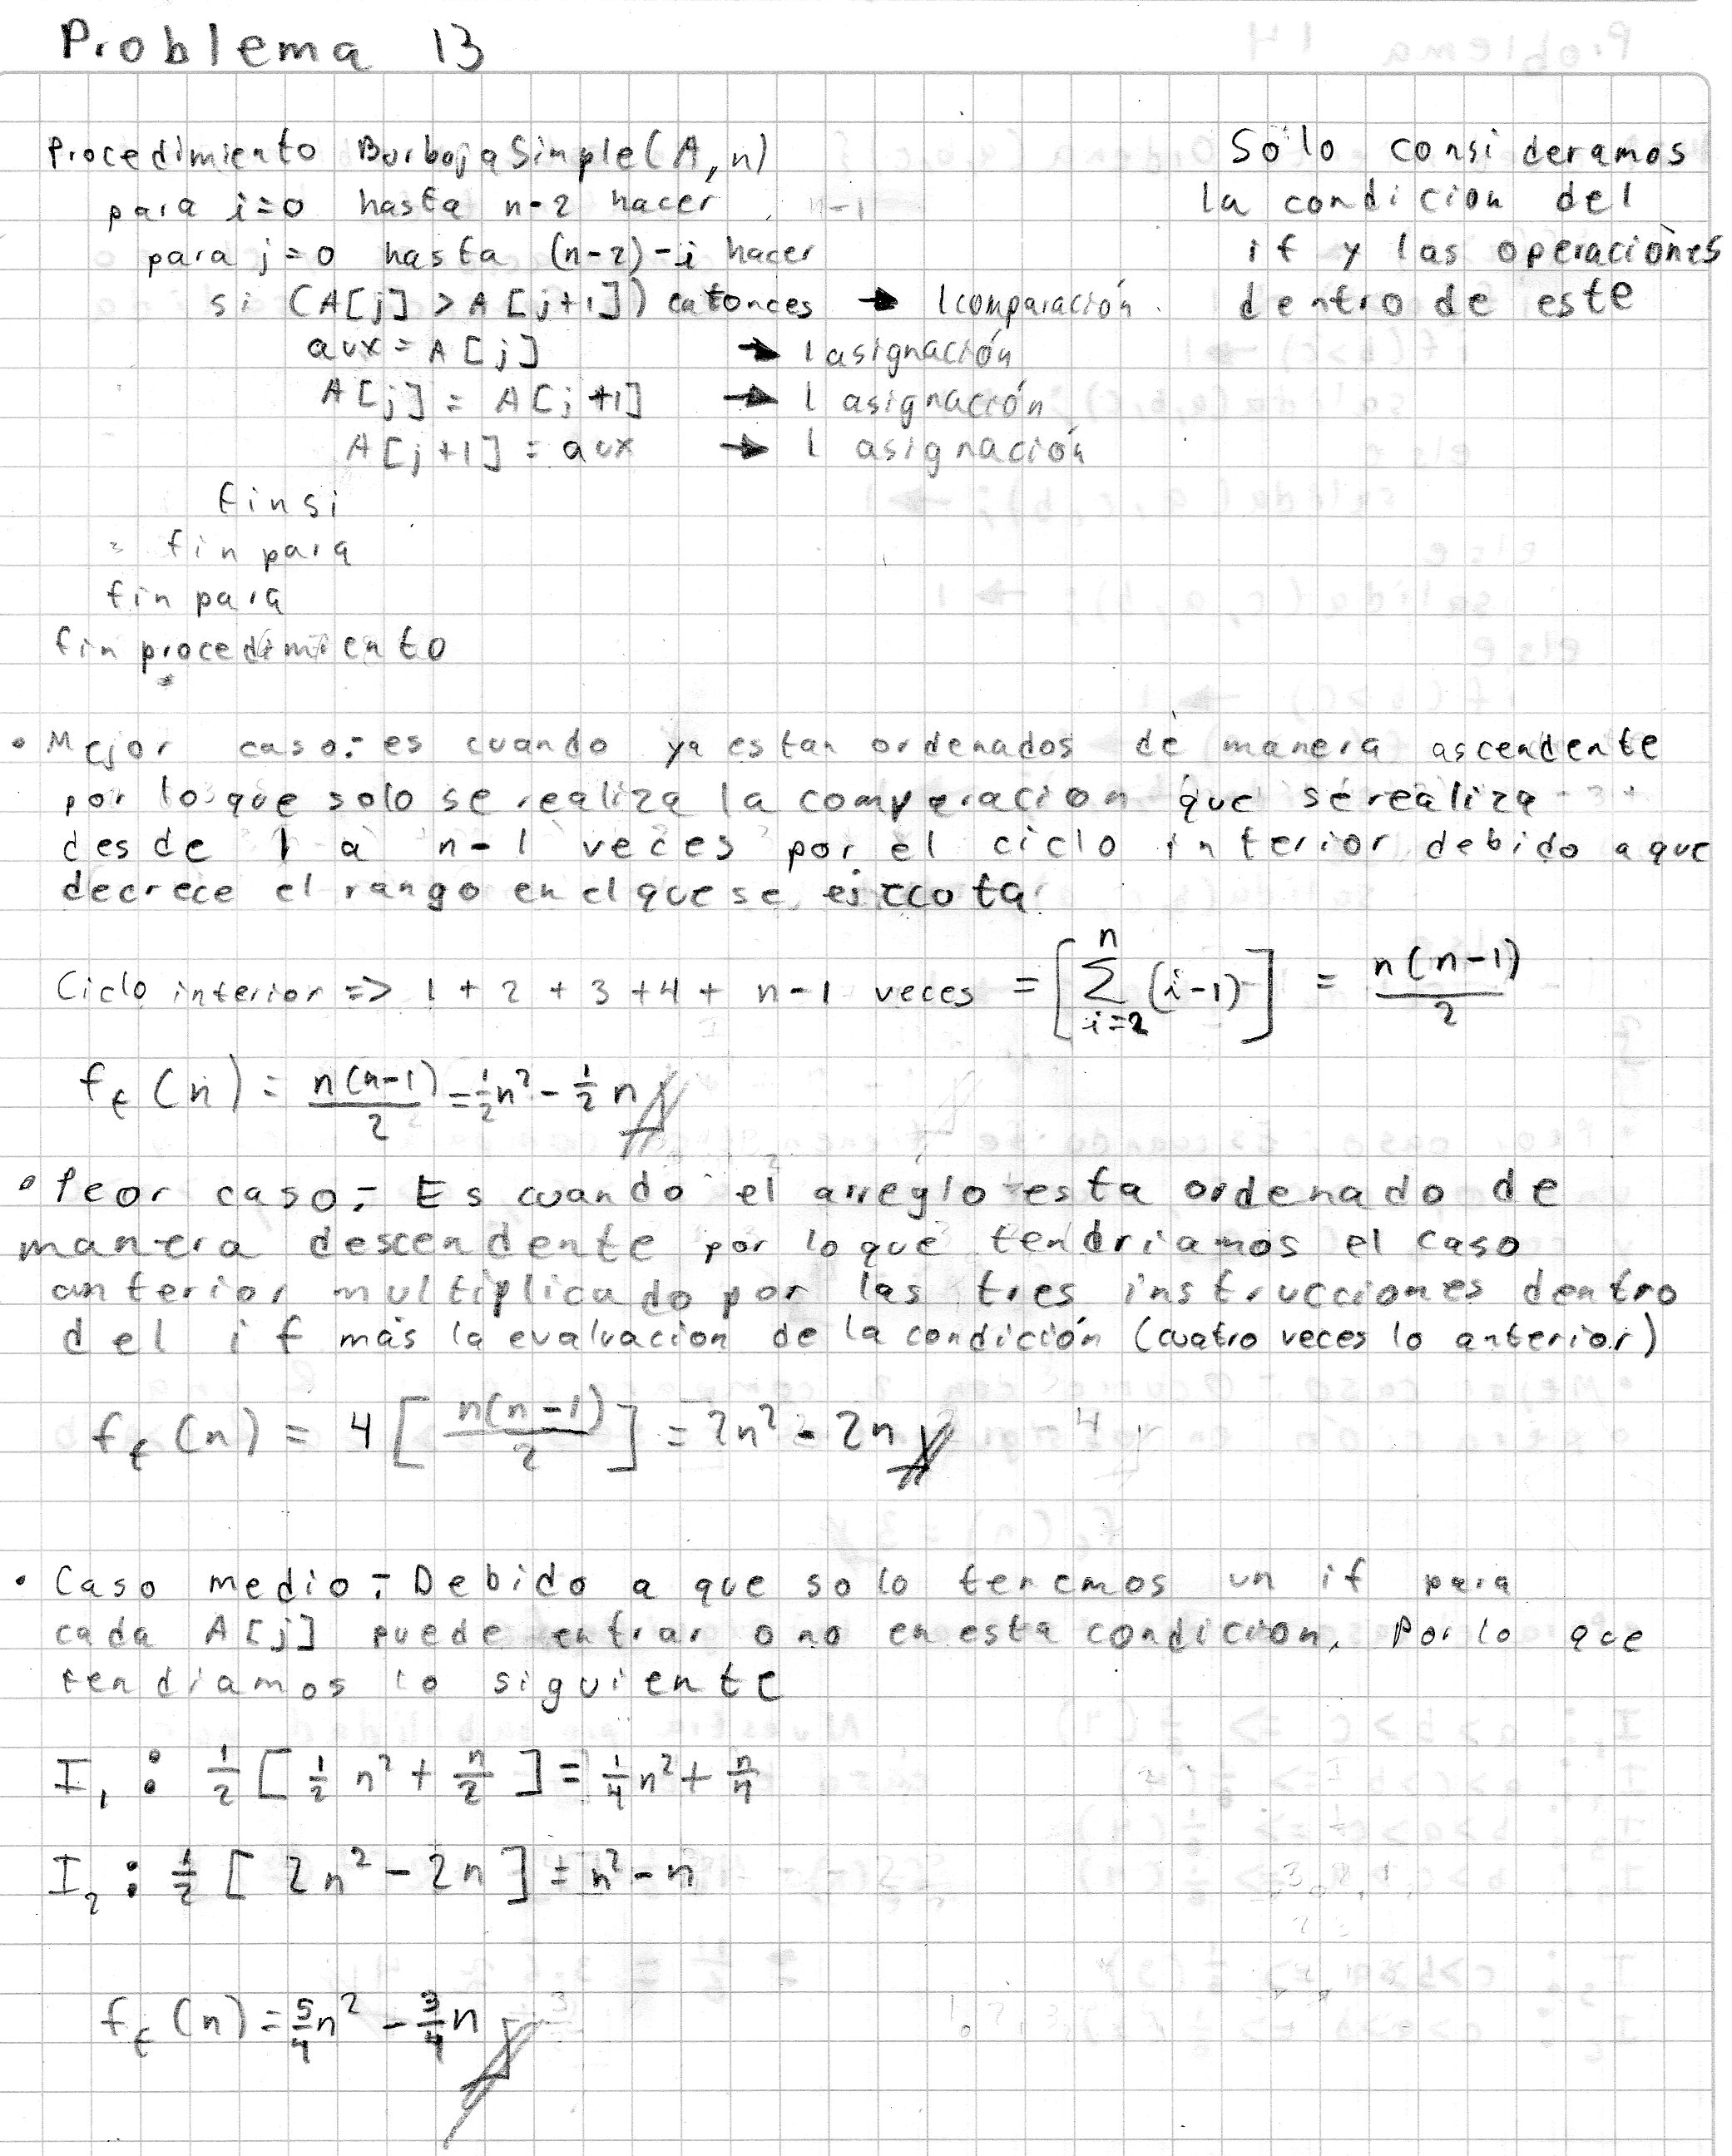 Problema 13
Procedimiento BurbujaSimple(A,n)
para i=0 hasta n-2 hacer
para j=0 hasta (n-2)-i hacer
si (A[j] > A[j+1]) entonces → 1 comparación
aux = A[j] → 1 asignación
A[j] = A[j+1] → 1 asignación
A[j+1] = aux → 1 asignación
fin si
fin para
fin para
fin procedimiento
Sólo consideramos
la condicion del
if y las operaciones
dentro de este
• Mejor caso:- es cuando ya estan ordenados de manera ascendente
por lo que solo se realiza la comparacion que se realiza
desde 1 a n-1 veces por el ciclo interior debido a que
decrece el rango en el que se ejecuta
Ciclo interior => 1 + 2 + 3 + 4 + n-1 veces = [∑_{i=2}^{n} (i-1)] = n(n-1)/2
f_t(n) = n(n-1)/2 = 1/2 n² - 1/2 n
• Peor caso:- Es cuando el arreglo esta ordenado de
manera descendente por lo que tendriamos el caso
anterior multiplicado por las tres instrucciones dentro
del if más la evaluacion de la condición (cuatro veces lo anterior)
f_t(n) = 4 [n(n-1)/2] = 2n² - 2n
• Caso medio:- Debido a que solo tenemos un if para
cada A[j] puede entrar o no en esta condicion. Por lo que
tendiamos lo siguiente
I₁ : 1/2 [1/2 n² + n/2] = 1/4 n² + n/4
I₂ : 1/2 [2n² - 2n] = n² - n
f_t(n) = 5/4 n² - 3/4 n